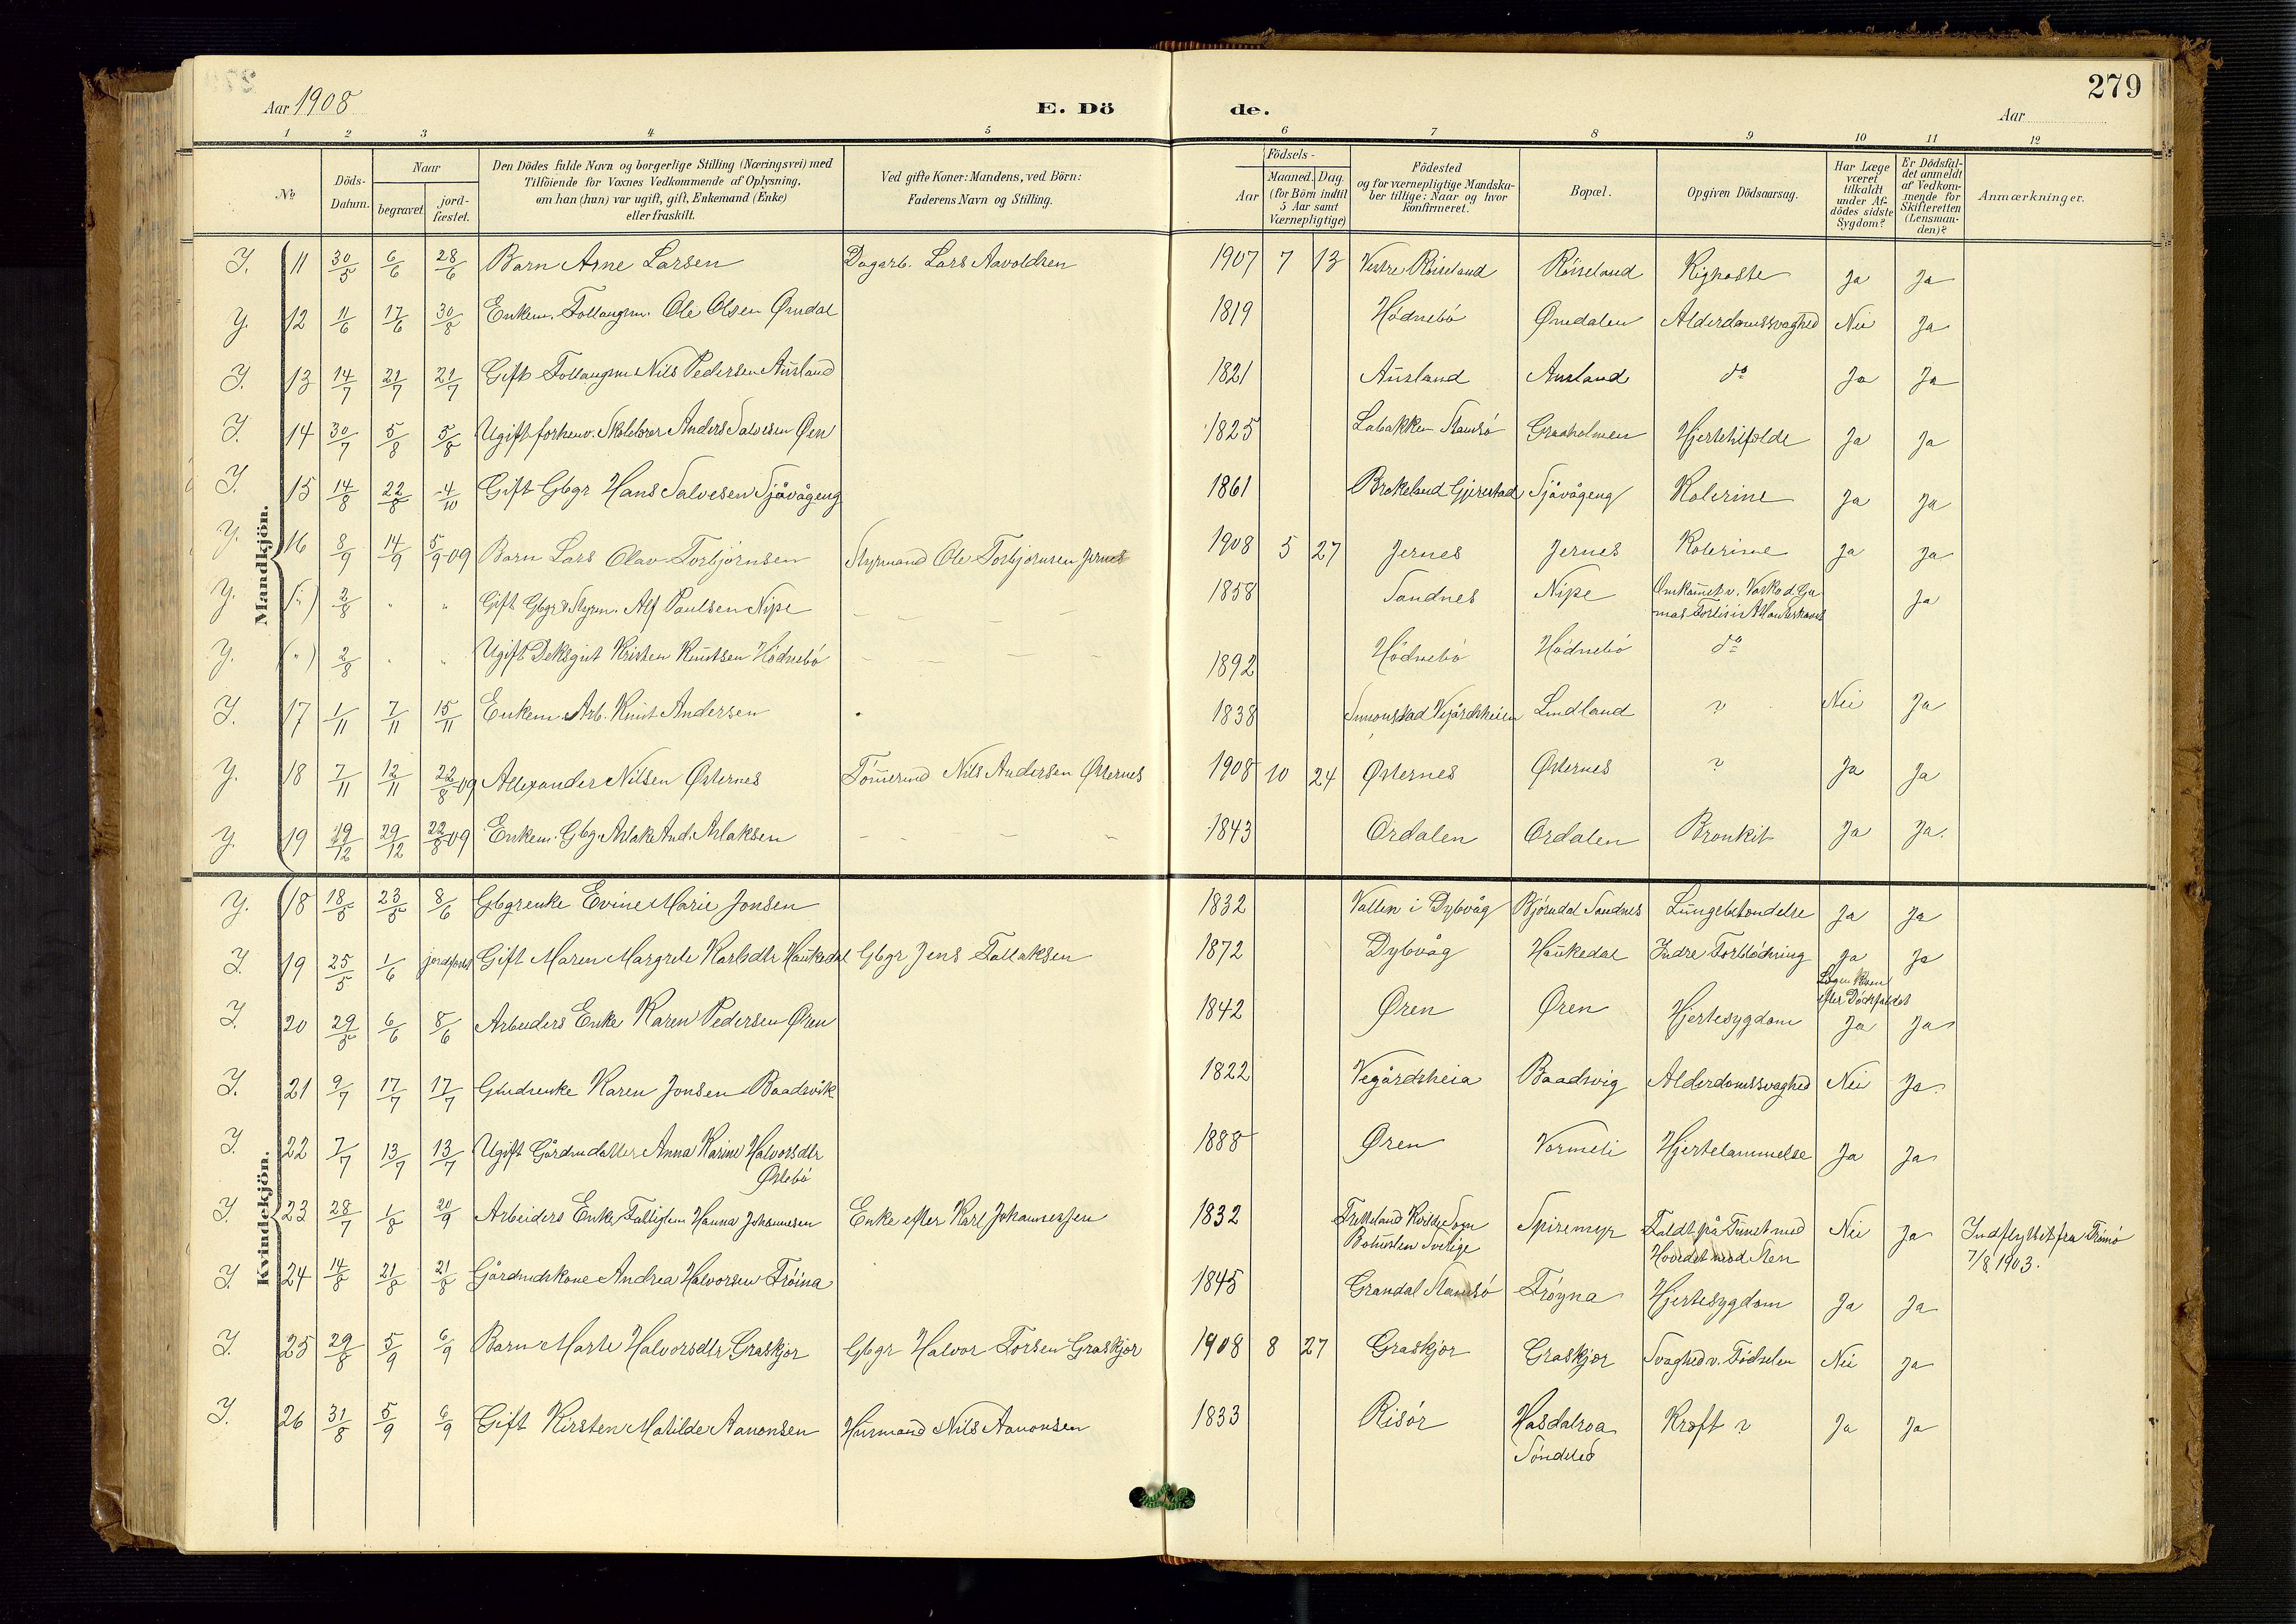 279
Aar 1908
E. Dö de.
Aar
1 2 3 4 5 6 7 8 9 10 11 12
No
Döds-Datum.
Naar
begravet.
jord-fæstet.
Den Dödes fulde Navn og borgerlige Stilling (Næringsvei) med
Tilföiende for Voxnes Vedkommende af Oplysning,
om han (hun) var ugift, gift, Enkemand (Enke)
eller fraskilt.
Ved gifte Koner: Mandens, ved Börn:
Faderens Navn og Stilling.
Födsels-
Aar
Maaned. Dag.
(for Börn indtil
5 Aar samt
Værnepligtige)
Födested
og for værnepligtige Mandska-
ber tillige: Naar og hvor
konfirmeret.
Bopæl.
Opgiven Dödsaarsag.
Har Læge
været
tilkaldt
under Af-
dödes sidste
Sygdom?
Er Dödsfal-
det anmeldt
af Vedkom-
mende for
Skifteretten
(Lensman-
den)?
Anmærkninger.
Mandkjön.
J. 11 30/5 6/6 28/6 Barn Arne Larsen Dagarb. Lars Aavoldsen 1907 7 13 Vestre Röiseland Röiseland Kighoste Ja Ja
J. 12 11/6 17/6 30/8 Enkem. Føllaugsm. Ole Olsen Ørndal 1819 Hödnebö Ørndalen Alderdomssvaghed Nei Ja
J. 13 14/7 21/7 21/7 Gift Føllaugsm Nils Pedersen Ausland 1821 Ausland Ausland do Ja Ja
J. 14 30/7 5/8 5/8 Ugift forhenv. Skolelærer Anders Salvesen Øen 1825 Labakken Graaholmen Hjertetilfælde Ja Ja
J. 15 14/8 22/8 4/10 Gift Gbgr Hans Salvesen Sjåvågeng 1861 Brokeland Gjerestad Sjåvågeng Kolerine Ja Ja
J. 16 8/9 14/9 5/9 09 Barn Lars Olav Torbjörnsen Styrmand Ole Torbjörnsen Jernes 1908 5 27 Jernes Jernes Kolerine Ja Ja
J. (") 2/8 " " Gift Gbgr & Styrm. Alf Paulsen Nipe 1858 Sandnes Nipe Omkommet v. Vasko d. Ga
mas Forlis i Atlanterhavet Ja
J. (") 2/8 " " Ugift Deksgut Kristen Knutsen Hödnebö 1892 Hödnebö Hödnebö do
J. 17 1/11 7/11 15/11 Enkem. Arb. Knut Andersen 1838 Simonstad Vegårdsheien Lindland ? Nei Ja
J. 18 7/11 12/11 22/8 09 Allexander Nilsen Østernes Tömmermd Nils Andersen Østernes 1908 10 24 Østernes Østernes ? Ja Ja
J. 19 19/12 29/12 22/8 09 Enkem. Gbg. Aslak And. Aslaksen 1843 Ørdalen Ørdalen Bronkit Ja Ja.
Kvindekjön.
J. 18 18/5 23/5 8/6 Gbgrenke Evine Marie Jonsen 1832 Vallen i Dybvåg Björndal Sandnes Lungebetændelse Ja Ja
J. 19 25/5 1/6 jordfæstet Gift Maren Margrete Karlsdtr Haukedal Gbgr Jens Tallaksen 1872 Dybvåg Haukedal Indre Forblödning Ja Ja
Lægen kom
efter Dödsfaldet
J. 20 29/5 6/6 8/6 Arbeiders Enke Karen Pedersen Øren 1842 Øren Øren Hjertesygdom Ja Ja
J. 21 9/7 17/7 17/7 Gmdsenke Karen Jonsen Baadsvik 1822 Vegårdsheia Baadsvig Alderdomssvaghed Nei Ja.
J. 22 7/7 13/7 13/7 Ugift Gårdmdatter Anna Karine Halvorsdtr
Østebö 1888 Øren Vormeli Hjertelammelse Ja Ja
J. 23 28/7 1/8 20/9 Arbeiders Enke Fattiglem Hanna Johannesen Enke efter Karl Johannessen 1832 Sogn
Sverige Spiremyr Faldt på Tunet med
Hovedet mod Sten Nei Ja Indflyttet fra Tromö
7/8 1903.
J. 24 14/8 21/8 21/8 Gårdmdskone Andrea Halvorsen Tröina 1845 Grandal Tröyna Hjertesygdom Ja Ja
J. 25 29/8 5/9 6/9 Barn Marte Halvorsdtr Graskjær Gbgr Halvor Torsen Graskjær 1908 8 27 Graskjær Graskjær Svaghed v. Födselen Nei Ja
J. 26 31/8 5/9 6/9 Gift Kirsten Matilde Aanonsen Husmand Nils Aanonsen 1833 Risör Hasdalroa
Söndeled Kræft ? Ja Ja